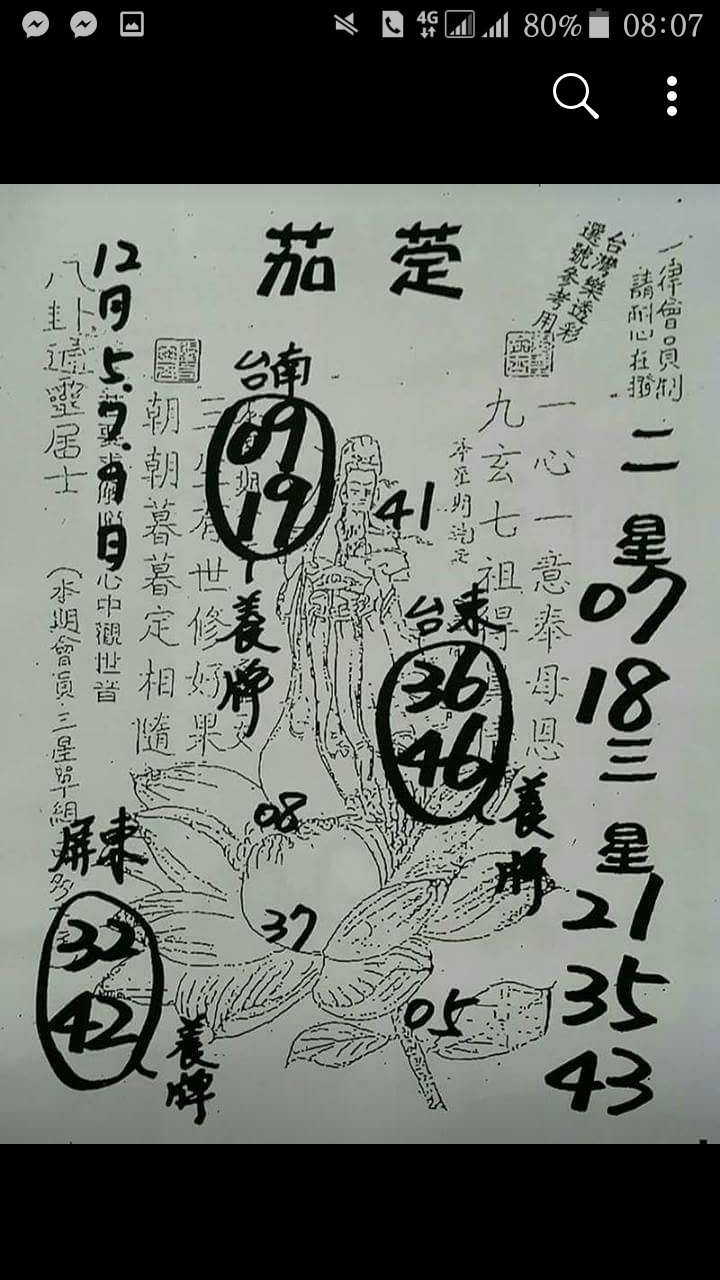 4G 80% 08:07
茄萣
台灣樂透彩
選號參考用
一律會員制
請耐心在撥
二星
07
18
三星
21
35
43
一心一意奉母恩
九玄七祖得
41
台東
36
46
養牌
台南
09
19
養牌
世修好果
朝朝暮暮定相隨
12月5.7.9日
心中觀世音
八卦通靈居士
(本期會員三星單組
08
37
05
屏東
32
42
養牌